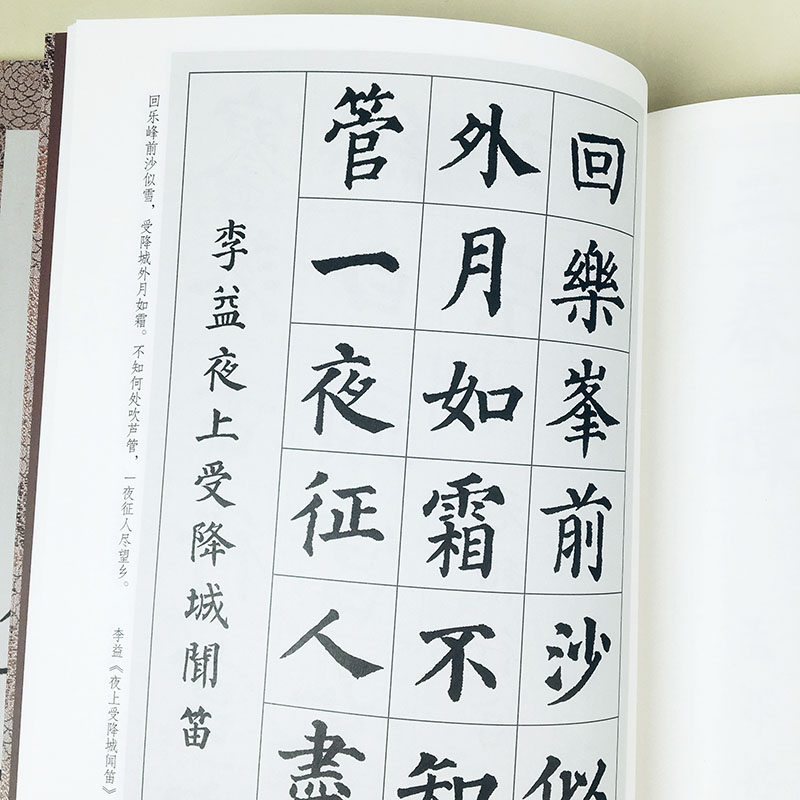 回樂峯前沙似
外月如霜不知
管一夜征人盡
李益夜上受降城聞笛
回乐峰前沙似雪，受降城外月如霜。不知何处吹芦管，一夜征人尽望乡。
李益《夜上受降城闻笛》